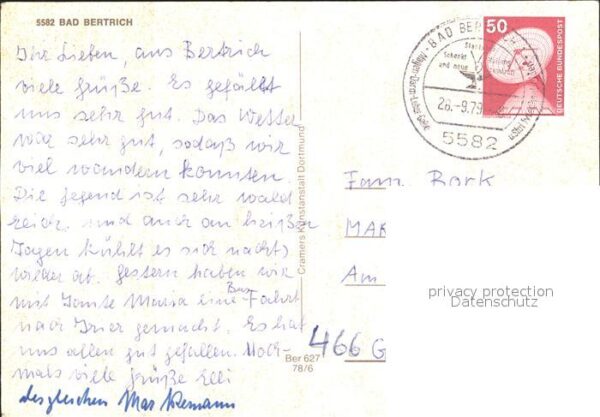 5582 BAD BERTRICH
Ihr Lieben, aus Bertrich
viele Grüße. Es gefällt
uns sehr gut. Das Wetter
war sehr gut, sodaß wir
viel wandern konnten.
Die Gegend ist sehr wald
reich, und auch an heißen
Tagen kühlt es sich nachts
wieder ab. Gestern haben wir
mit Tante Maria eine Bus Fahrt
nach Trier gemacht. Es hat
uns allen gut gefallen. Noch-
mals viele Grüße Elli
desgleichen
Cramers Kunstanstalt Dortmund
Ber 627
78/6
BAD BERTRICH
28.-9.79
5582
50
DEUTSCHE BUNDESPOST
Fam. Bork
MAR
Am
466 G
privacy protection
Datenschutz